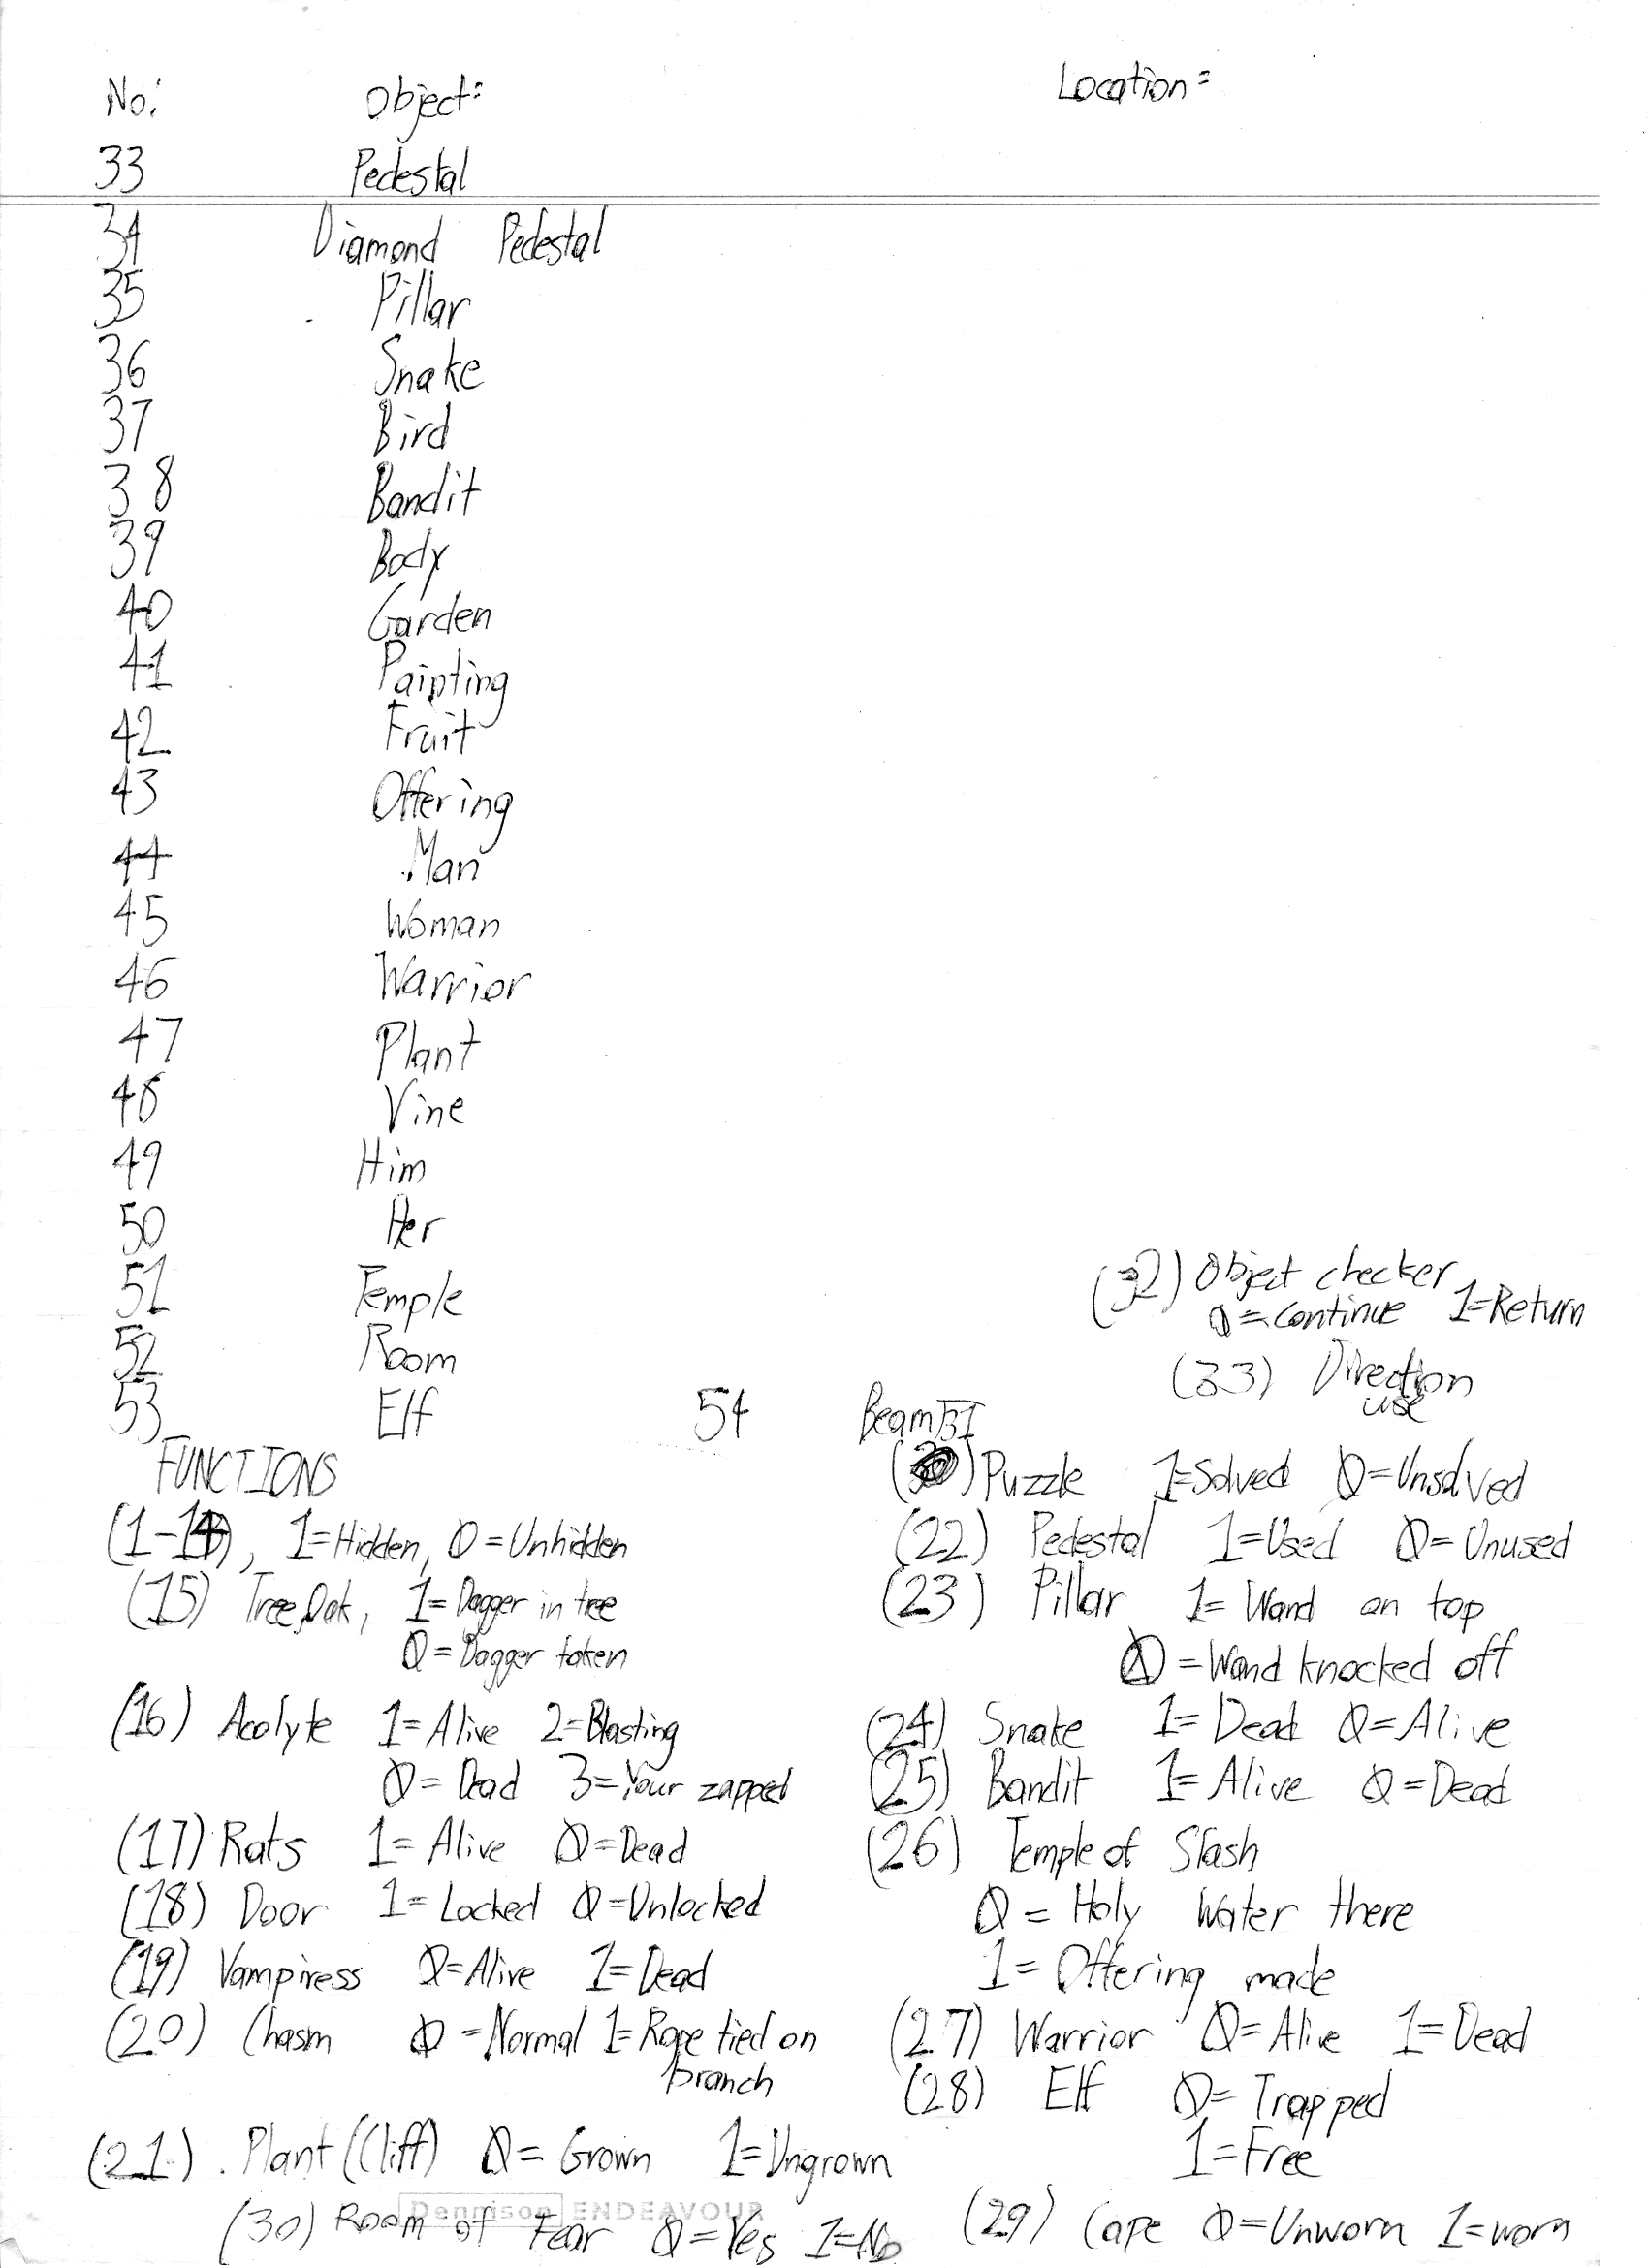 No: Object: Location=
33 Pedestal
34 Diamond Pedestal
35 Pillar
36 Snake
37 Bird
38 Bandit
39 Body
40 Garden
41 Painting
42 Fruit
43 Offering
44 Man
45 Woman
46 Warrior
47 Plant
48 Vine
49 Him
50 Her
51 Temple
52 Room
53 Elf 54 Beam
(32) Object checker
0=Continue 1=Return
(33) Direction
use
FUNCTIONS
(1-14), 1=Hidden, 0=Unhidden
(15) Tree, Oak, 1=Dagger in tree
0=Dagger taken
(16) Acolyte 1=Alive 2=Blasting
0=Dead 3=Your zapped
(17) Rats 1=Alive 0=Dead
(18) Door 1=Locked 0=Unlocked
(19) Vampiress 0=Alive 1=Dead
(20) Chasm 0=Normal 1=Rope tied on
branch
(21). Plant (Cliff) 0=Grown 1=Ungrown
(30) Room of Fear 0=Yes 1=No
31
Puzzle 1=Solved 0=Unsolved
(22) Pedestal 1=Used 0=Unused
(23) Pillar 1=Wand on top
0=Wand knocked off
(24) Snake 1=Dead 0=Alive
(25) Bandit 1=Alive 0=Dead
(26) Temple of Slash
0=Holy Water there
1=Offering made
(27) Warrior 0=Alive 1=Dead
(28) Elf 0=Trapped
1=Free
(29) Cape 0=Unworn 1=worn
Dennison ENDEAVOUR